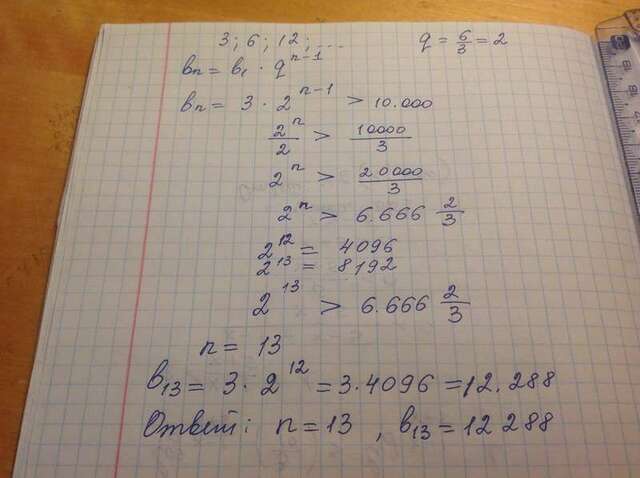 3; 6; 12; ... q = 6/3 = 2
bn = b1 · q^(n-1)
bn = 3 · 2^(n-1) > 10.000
2^n/2 > 10000/3
2^n > 20000/3
2^n > 6.666 2/3
2^12 = 4096
2^13 = 8192
2^13 > 6.666 2/3
n = 13
b13 = 3 · 2^12 = 3 · 4096 = 12.288
Ответ: n = 13, b13 = 12 288